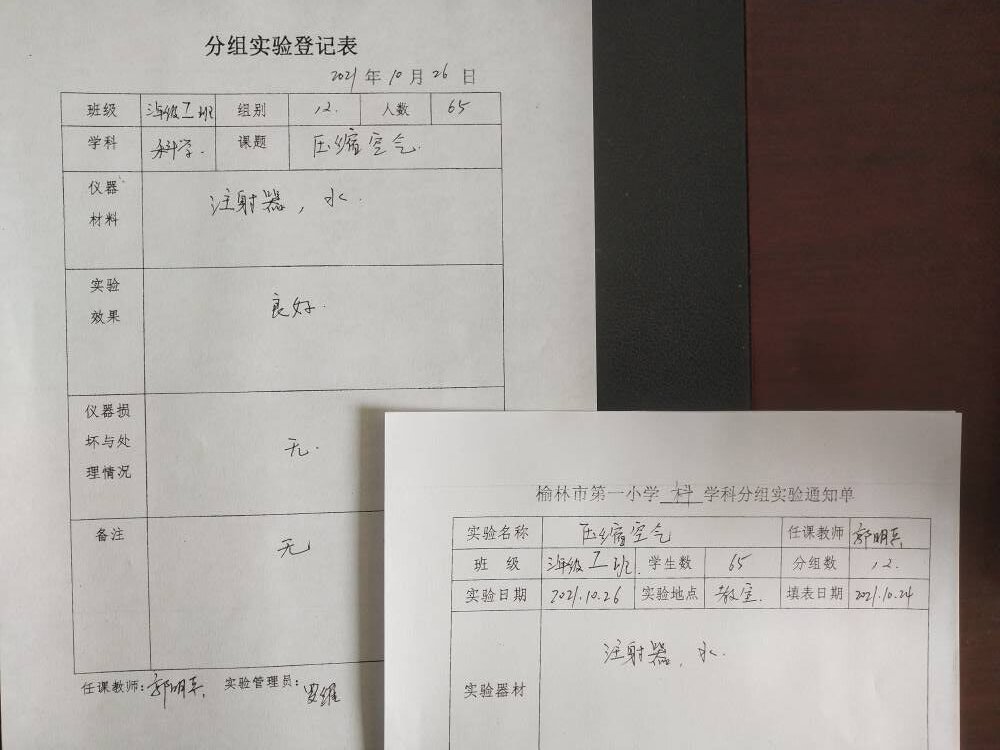 分组实验登记表
2021年10月26日
班级 三年级工班 组别 12. 人数 65
学科 科学. 课题 压缩空气.
仪器材料 注射器,水.
实验效果 良好.
仪器损坏与处理情况 无.
备注 无
任课教师: 实验管理员: 罗维
榆林市第一小学 科 学科分组实验通知单
实验名称 压缩空气 任课教师
班 级 三年级工班. 学生数 65 分组数 12.
实验日期 2021.10.26 实验地点 教室. 填表日期 2021.10.24
实验器材 注射器,水.